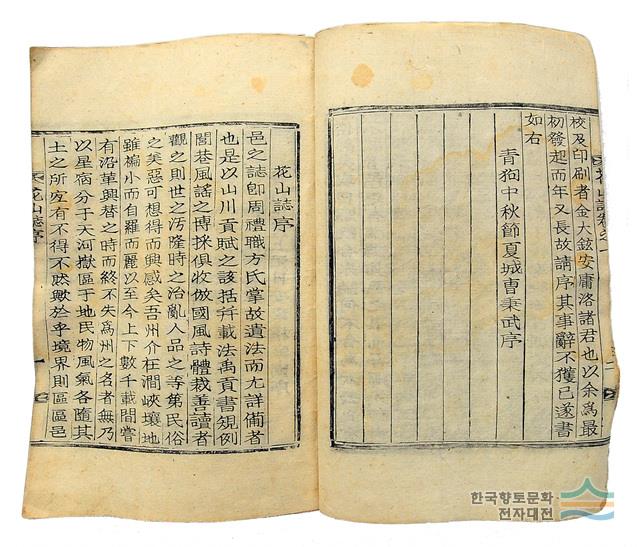 校及印刷者金大鉉安庸洛諸君也以余爲最
初發起而年又長故請序其事辭不獲已遂書
如右
靑狗中秋節夏城曺秉武序
花山誌序
邑之誌卽周禮職方氏掌故遺法而尤詳備者
也是以山川貢賦之該括幷載法禹貢書規例
閭巷風謠之博採俱收倣國風詩體裁善讀者
觀之則世之汚隆時之治亂人品之等第民俗
之美惡可想得而興感矣吾州介在澗峽壤地
雖褊小而自羅而麗以至今上下數千載間嘗
有沿革興替之時而終不失爲州之名者無乃
以星宿分于天河嶽區于地民物風氣各隨其
土之所宜有不得不然歟於乎境界則區區邑
花山誌序
一
한국향토문화
전자대전